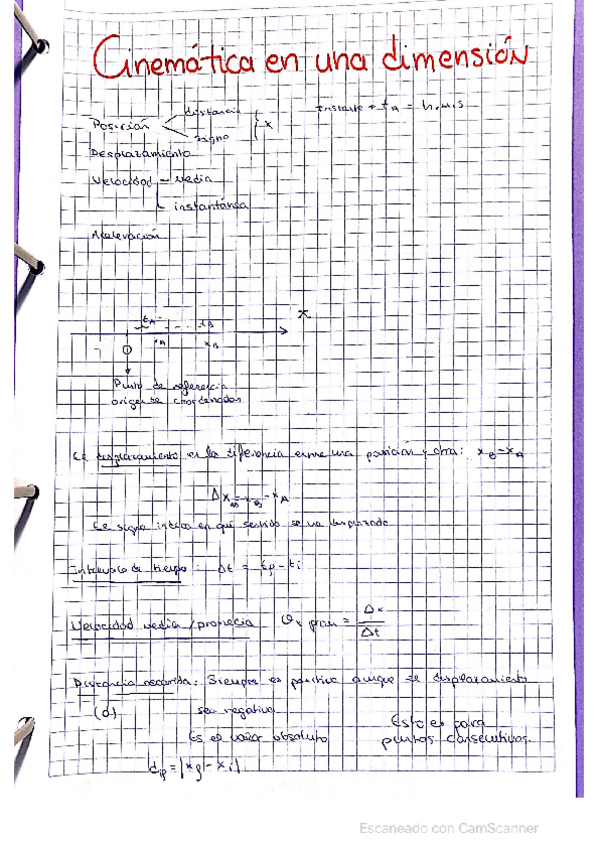 Cinemática en una dimensión
Posición distancia signo x
Instante → tA = h, m, s
Desplazamiento
Velocidad - media
instantánea
Aceleración
x
tA tB
xA xB
0
Punto de referencia
origen de coordenadas
El desplazamiento es la diferencia entre una posición y otra: xB - xA
ΔxAB = xB - xA
El signo indica en qué sentido se va desplazando
Intervalo de tiempo: Δt = tf - ti
Velocidad media / promedio vx prom = Δx / Δt
Distancia recorrida: Siempre es positiva aunque el desplazamiento
(d) sea negativo
Es el valor absoluto
Esto es para
puntos consecutivos.
= |xf - xi|
Escaneado con CamScanner